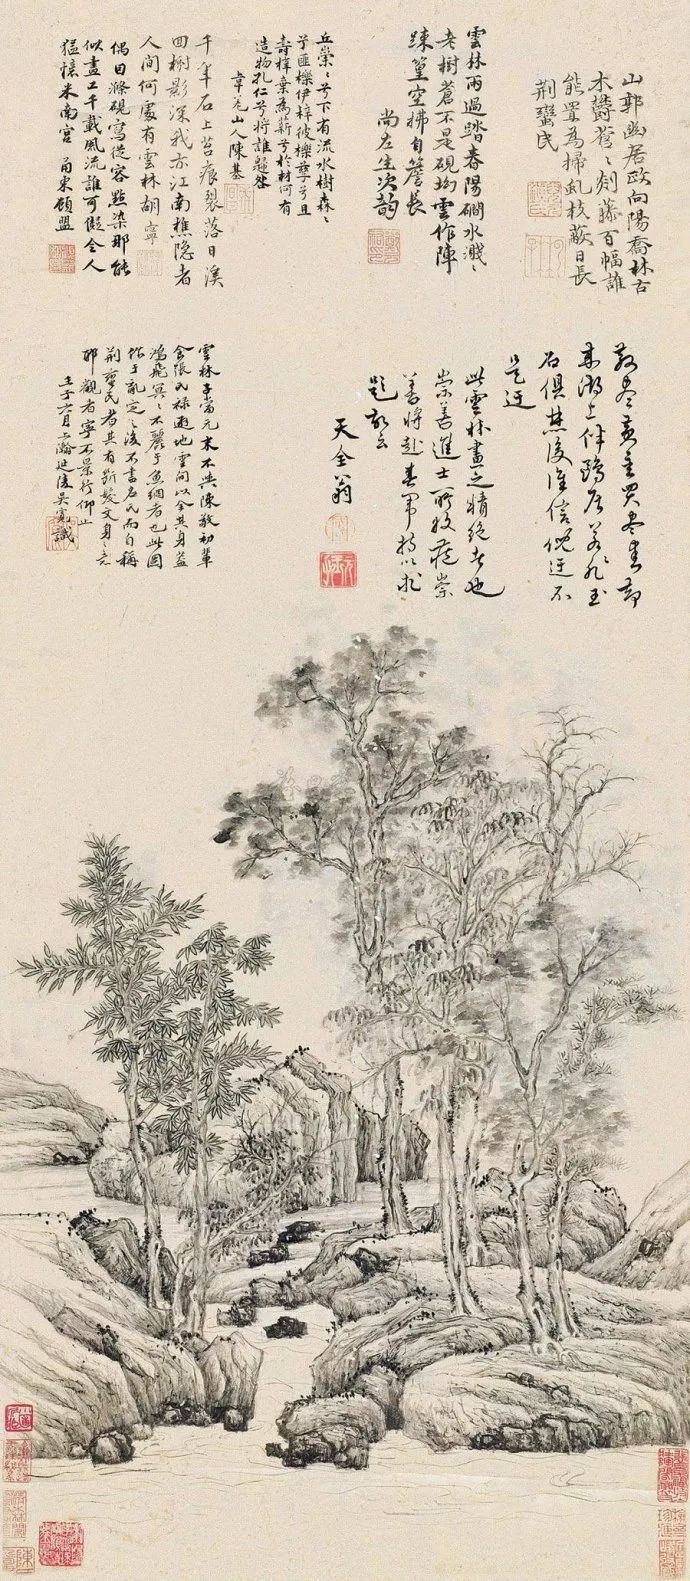 山郭幽居政向陽喬林古
木鬱蒼〻剡藤百幅誰
能置為掃虬枝蔽日長
荊蠻民
雲林雨過踏春陽磵水濺〻
老樹蒼不是硯坳雲作陣
踈篁空拂自簷長
尚左生次韵
丘崇〻兮下有流水樹森〻
兮匪櫟伊梓彼櫟孽兮且
壽梓棄為薪兮於材何有
造物孔仁兮將誰歸咎
韋羌山人陳基
千年石上苔痕裂落日溪
回樹影深我亦江南樵隐者
人間何處有雲林胡寧
偶因滌硯寫從容點染那能
似畫工千載風流誰可儗令人
猛憶米南宮 甬東顧盟
散盡黃金買盡書却
來湖上伴鷗居若為玉
石俱焚後誰信倪迂不
是迂
此雲林畫之精絕者也
崇善進士所投崇
善將赴春闈持以求
題故云
天全翁
雲林子當元末不與陳敬初輩
食張氏祿遯地雲間以全其身益
鴻飛冥〻不麗于魚網者也此圖
作于亂定之後不書名氏而自稱
荊蠻民者其有斷髮文身之意
耶觀者寧不景行仰止
壬子六月二瀚延陵吳寬識